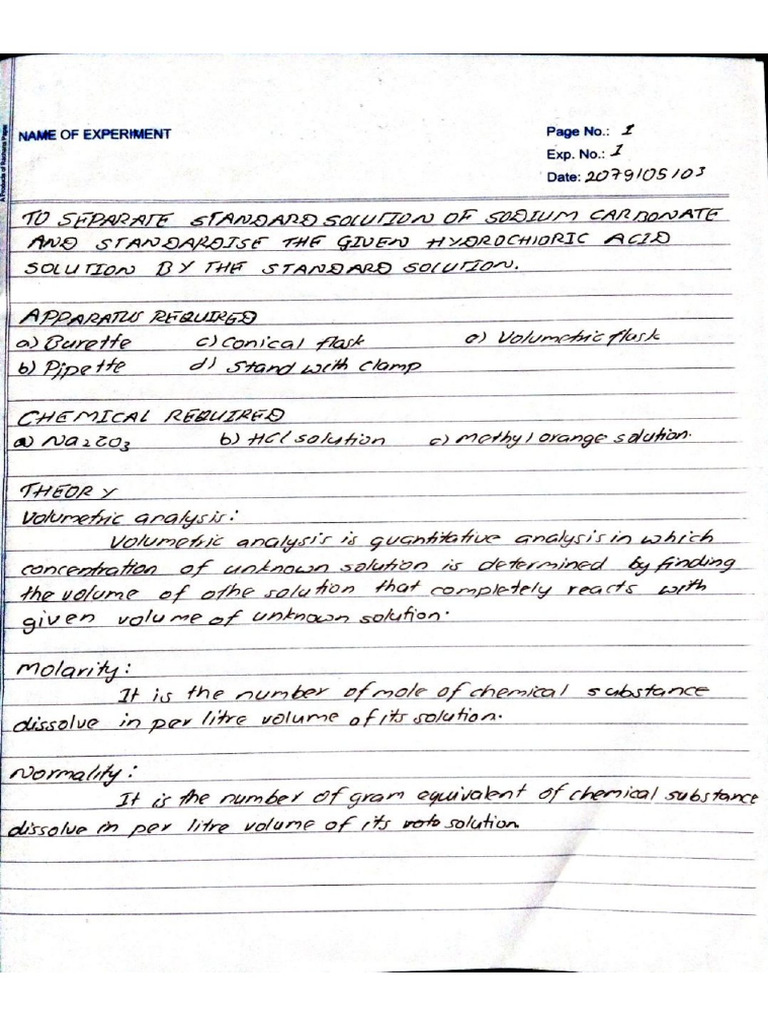 NAME OF EXPERIMENT
Page No.: 1
Exp. No.: 1
Date: 2079/05/03
TO SEPARATE STANDARD SOLUTION OF SODIUM CARBONATE
AND STANDARDISE THE GIVEN HYDROCHLORIC ACID
SOLUTION BY THE STANDARD SOLUTION.
APPARATUS REQUIRED
a) Burette c) Conical flask e) Volumetric flask
b) Pipette d) Stand with clamp
CHEMICAL REQUIRED
a) Na2CO3 b) HCl solution c) Methyl orange solution.
THEORY
Volumetric analysis:
Volumetric analysis is quantitative analysis in which
concentration of unknown solution is determined by finding
the volume of othe solution that completely reacts with
given volume of unknown solution.
Molarity:
It is the number of mole of chemical substance
dissolve in per litre volume of its solution.
Normality:
It is the number of gram equivalent of chemical substance
dissolve in per litre volume of its solution.